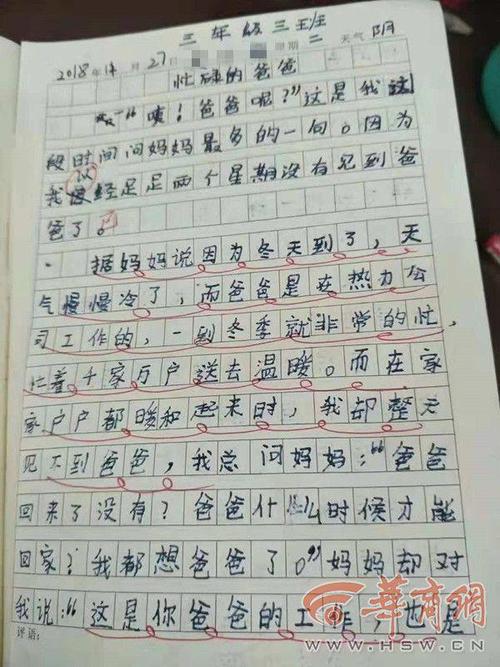 三年级三班
2018年11月27日 星期二 天气阴
忙碌的爸爸
“咦！爸爸呢？”这是我这
段时间问妈妈最多的一句。因为
我已经足足两个星期没有见到爸
爸了。
据妈妈说因为冬天到了，天
气慢慢冷了，而爸爸是在热力公
司工作的，一到冬季就非常的忙，
忙着千家万户送去温暖。而在家
家户户都暖和起来时，我却整天
见不到爸爸，我总问妈妈：“爸爸
回来了没有？爸爸什么时候才能
回家？我都想爸爸了。”妈妈却对
我说：“这是你爸爸的工作，也是
评语：
华商网
WWW.HSW.CN